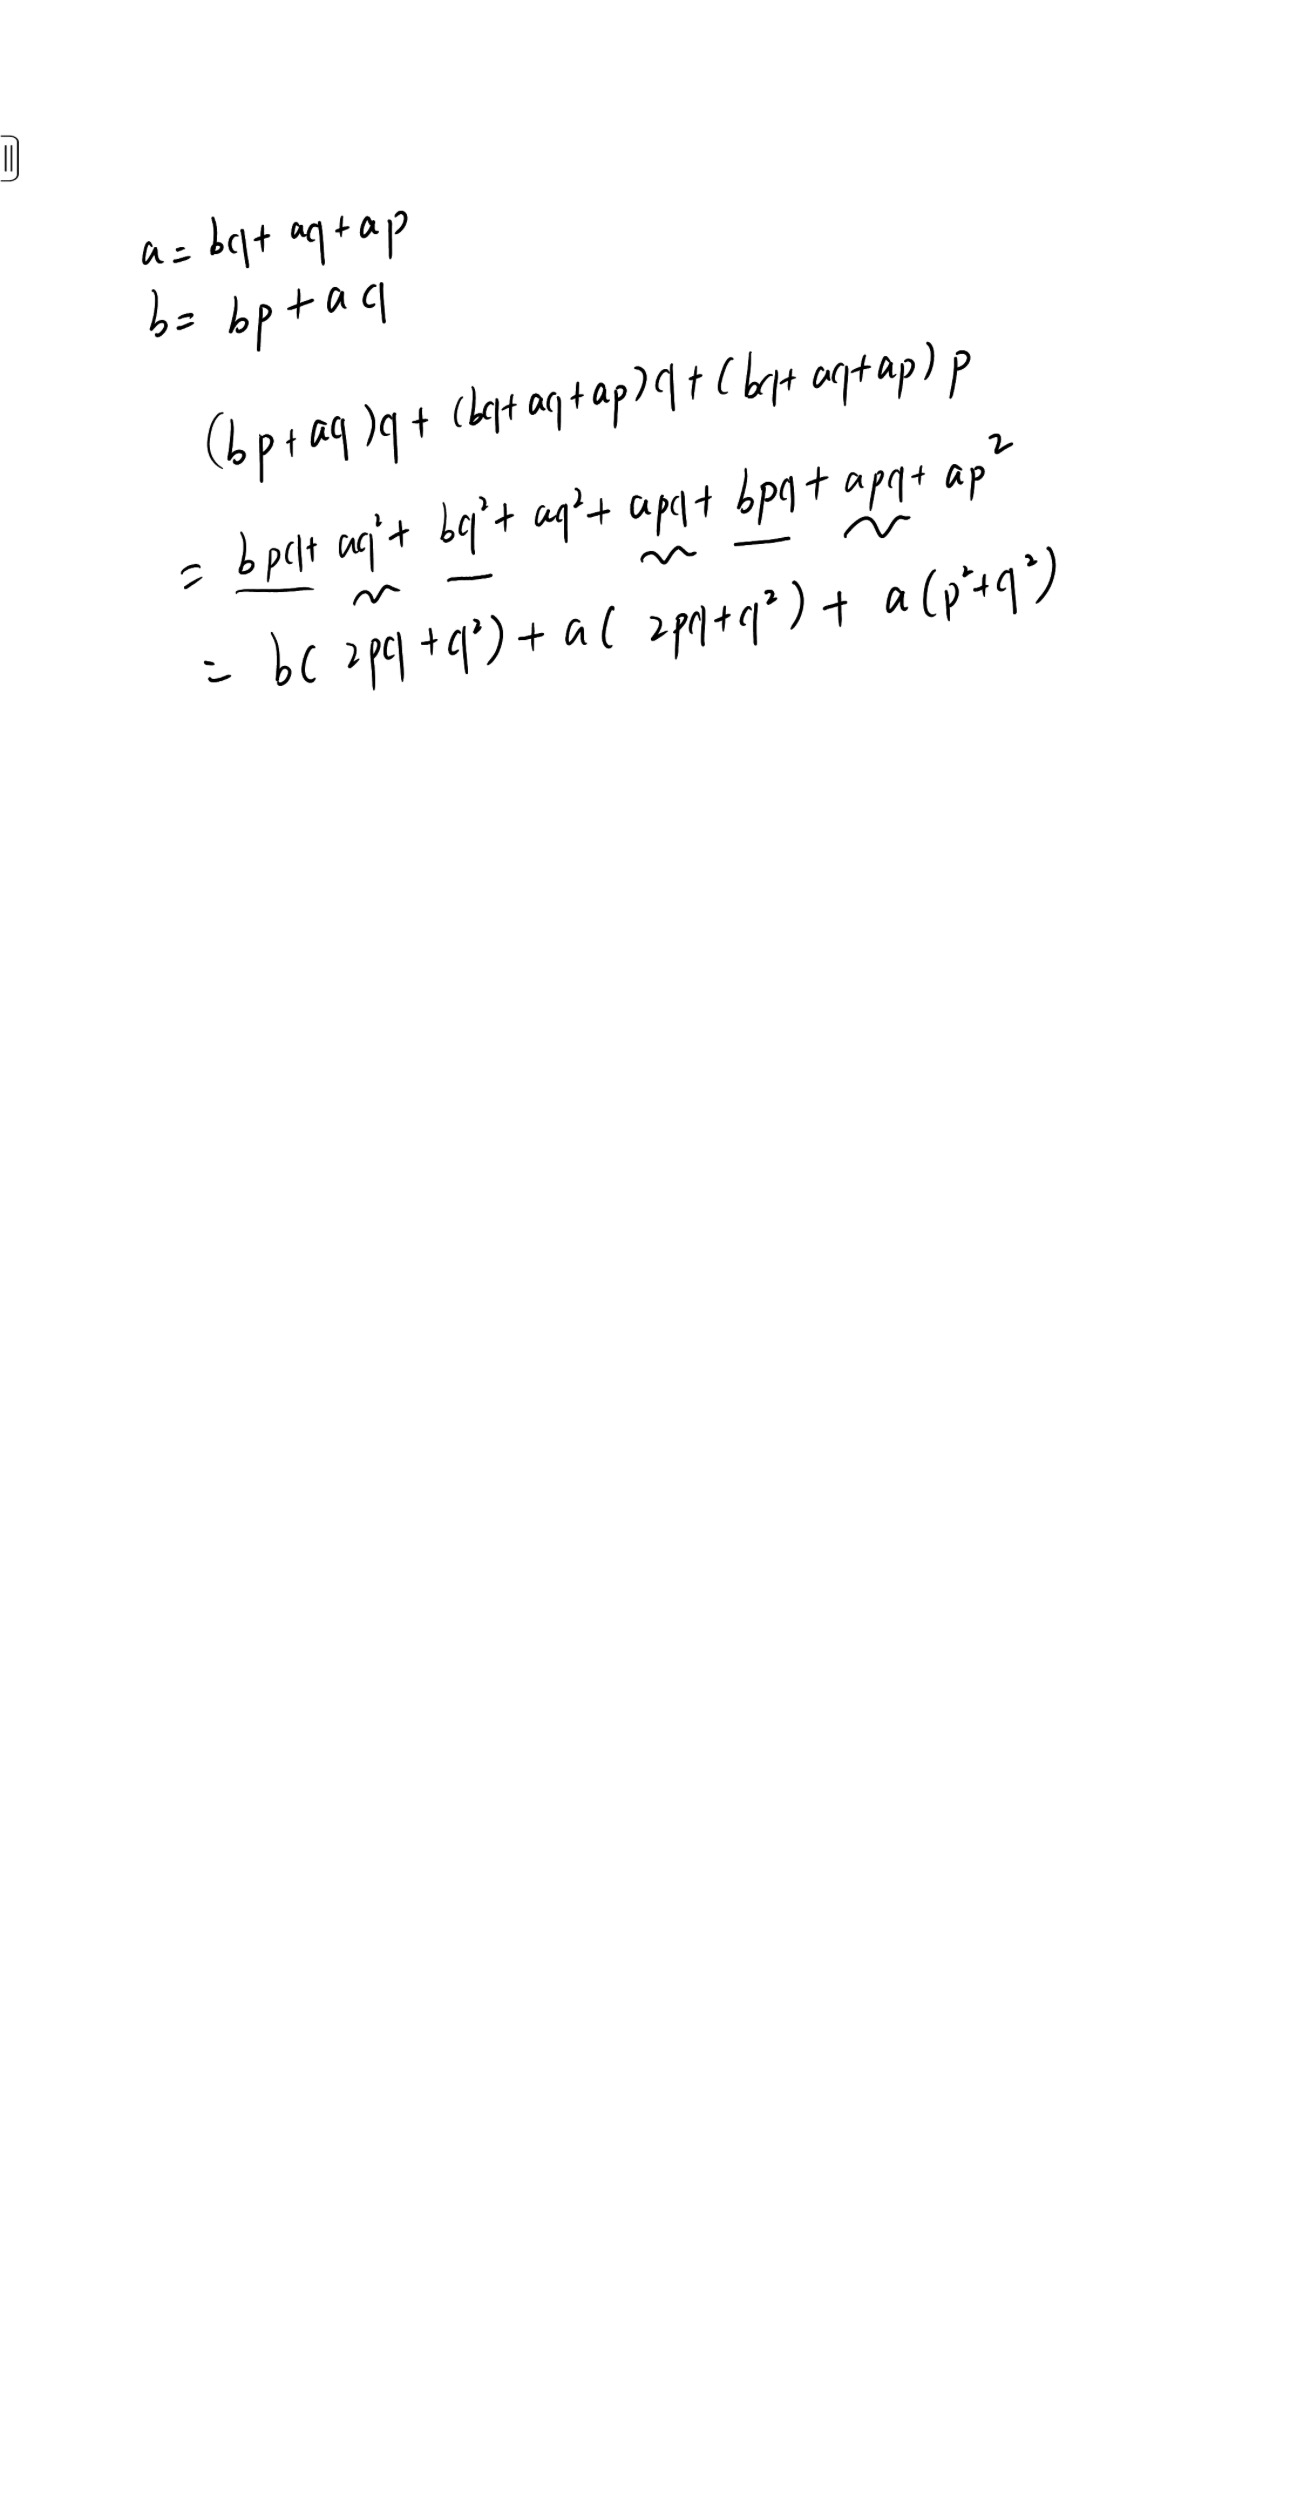 a = bq + aq + ap
b = bp + aq
(bp + aq)q + (bq + aq + ap)q + (bq + aq + ap)p
= bpq + aq² + bq² + aq² + apq + bpq + apq + ap²
= b(2pq + q²) + a(2pq + q²) + a(p² + q²)